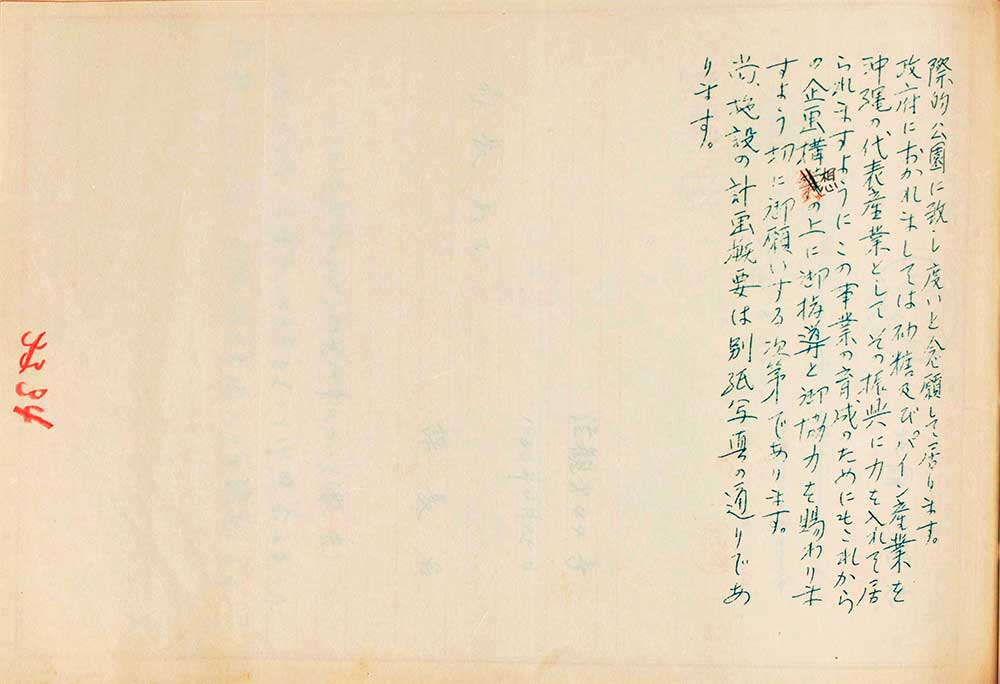 際的公園に致し度いと念願して居ります。
政府におかれましては砂糖及びパイン産業を
沖縄の代表産業としてその振興に力を入れて居
られますようにこの事業の育成のためにもこれから
の企画構想の上に御指導と御協力を賜わりま
すよう切に御願いする次第であります。
尚、施設の計画概要は別紙写真の通りであ
ります。